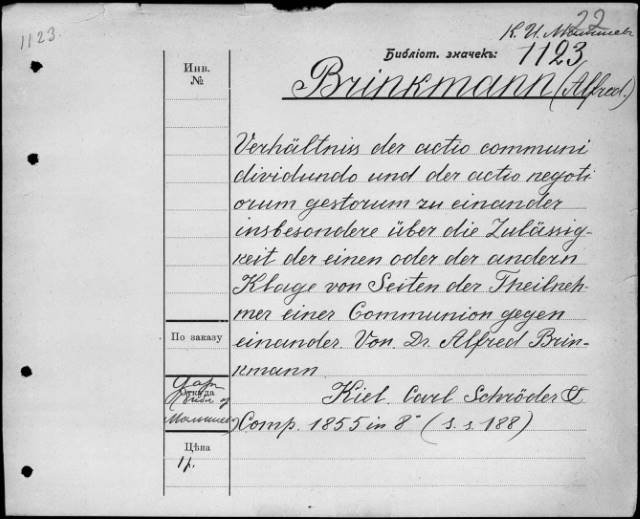 1123.
22
К. И. Малышев
Библіот. значекъ: 1123
Brinkmann (Alfred.)
Инв.
№
Verhältniss der actio communi
dividundo und der actio negoti
orum gestorum zu einander
insbesondere über die Zulässig-
keit der einen oder der andern
Klage von Seiten der Theilneh-
mer einer Communion gegen
einander. Von Dr. Alfred Brin-
kmann
Kiel. Carl Schröder &
Comp. 1855 in 8° (s. s. 188)
По заказу
Откуда
Дар
библ
Малышева
Цѣна
1 р.